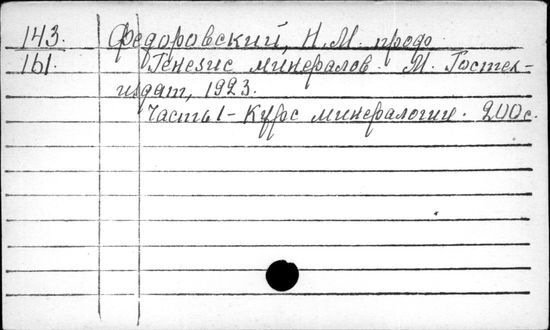 143. Федоровский, Н.М. проф.
161. Генезис минералов. М. Гостех-
издат, 1923.
Часть I - Курс минералогии. 200 с.